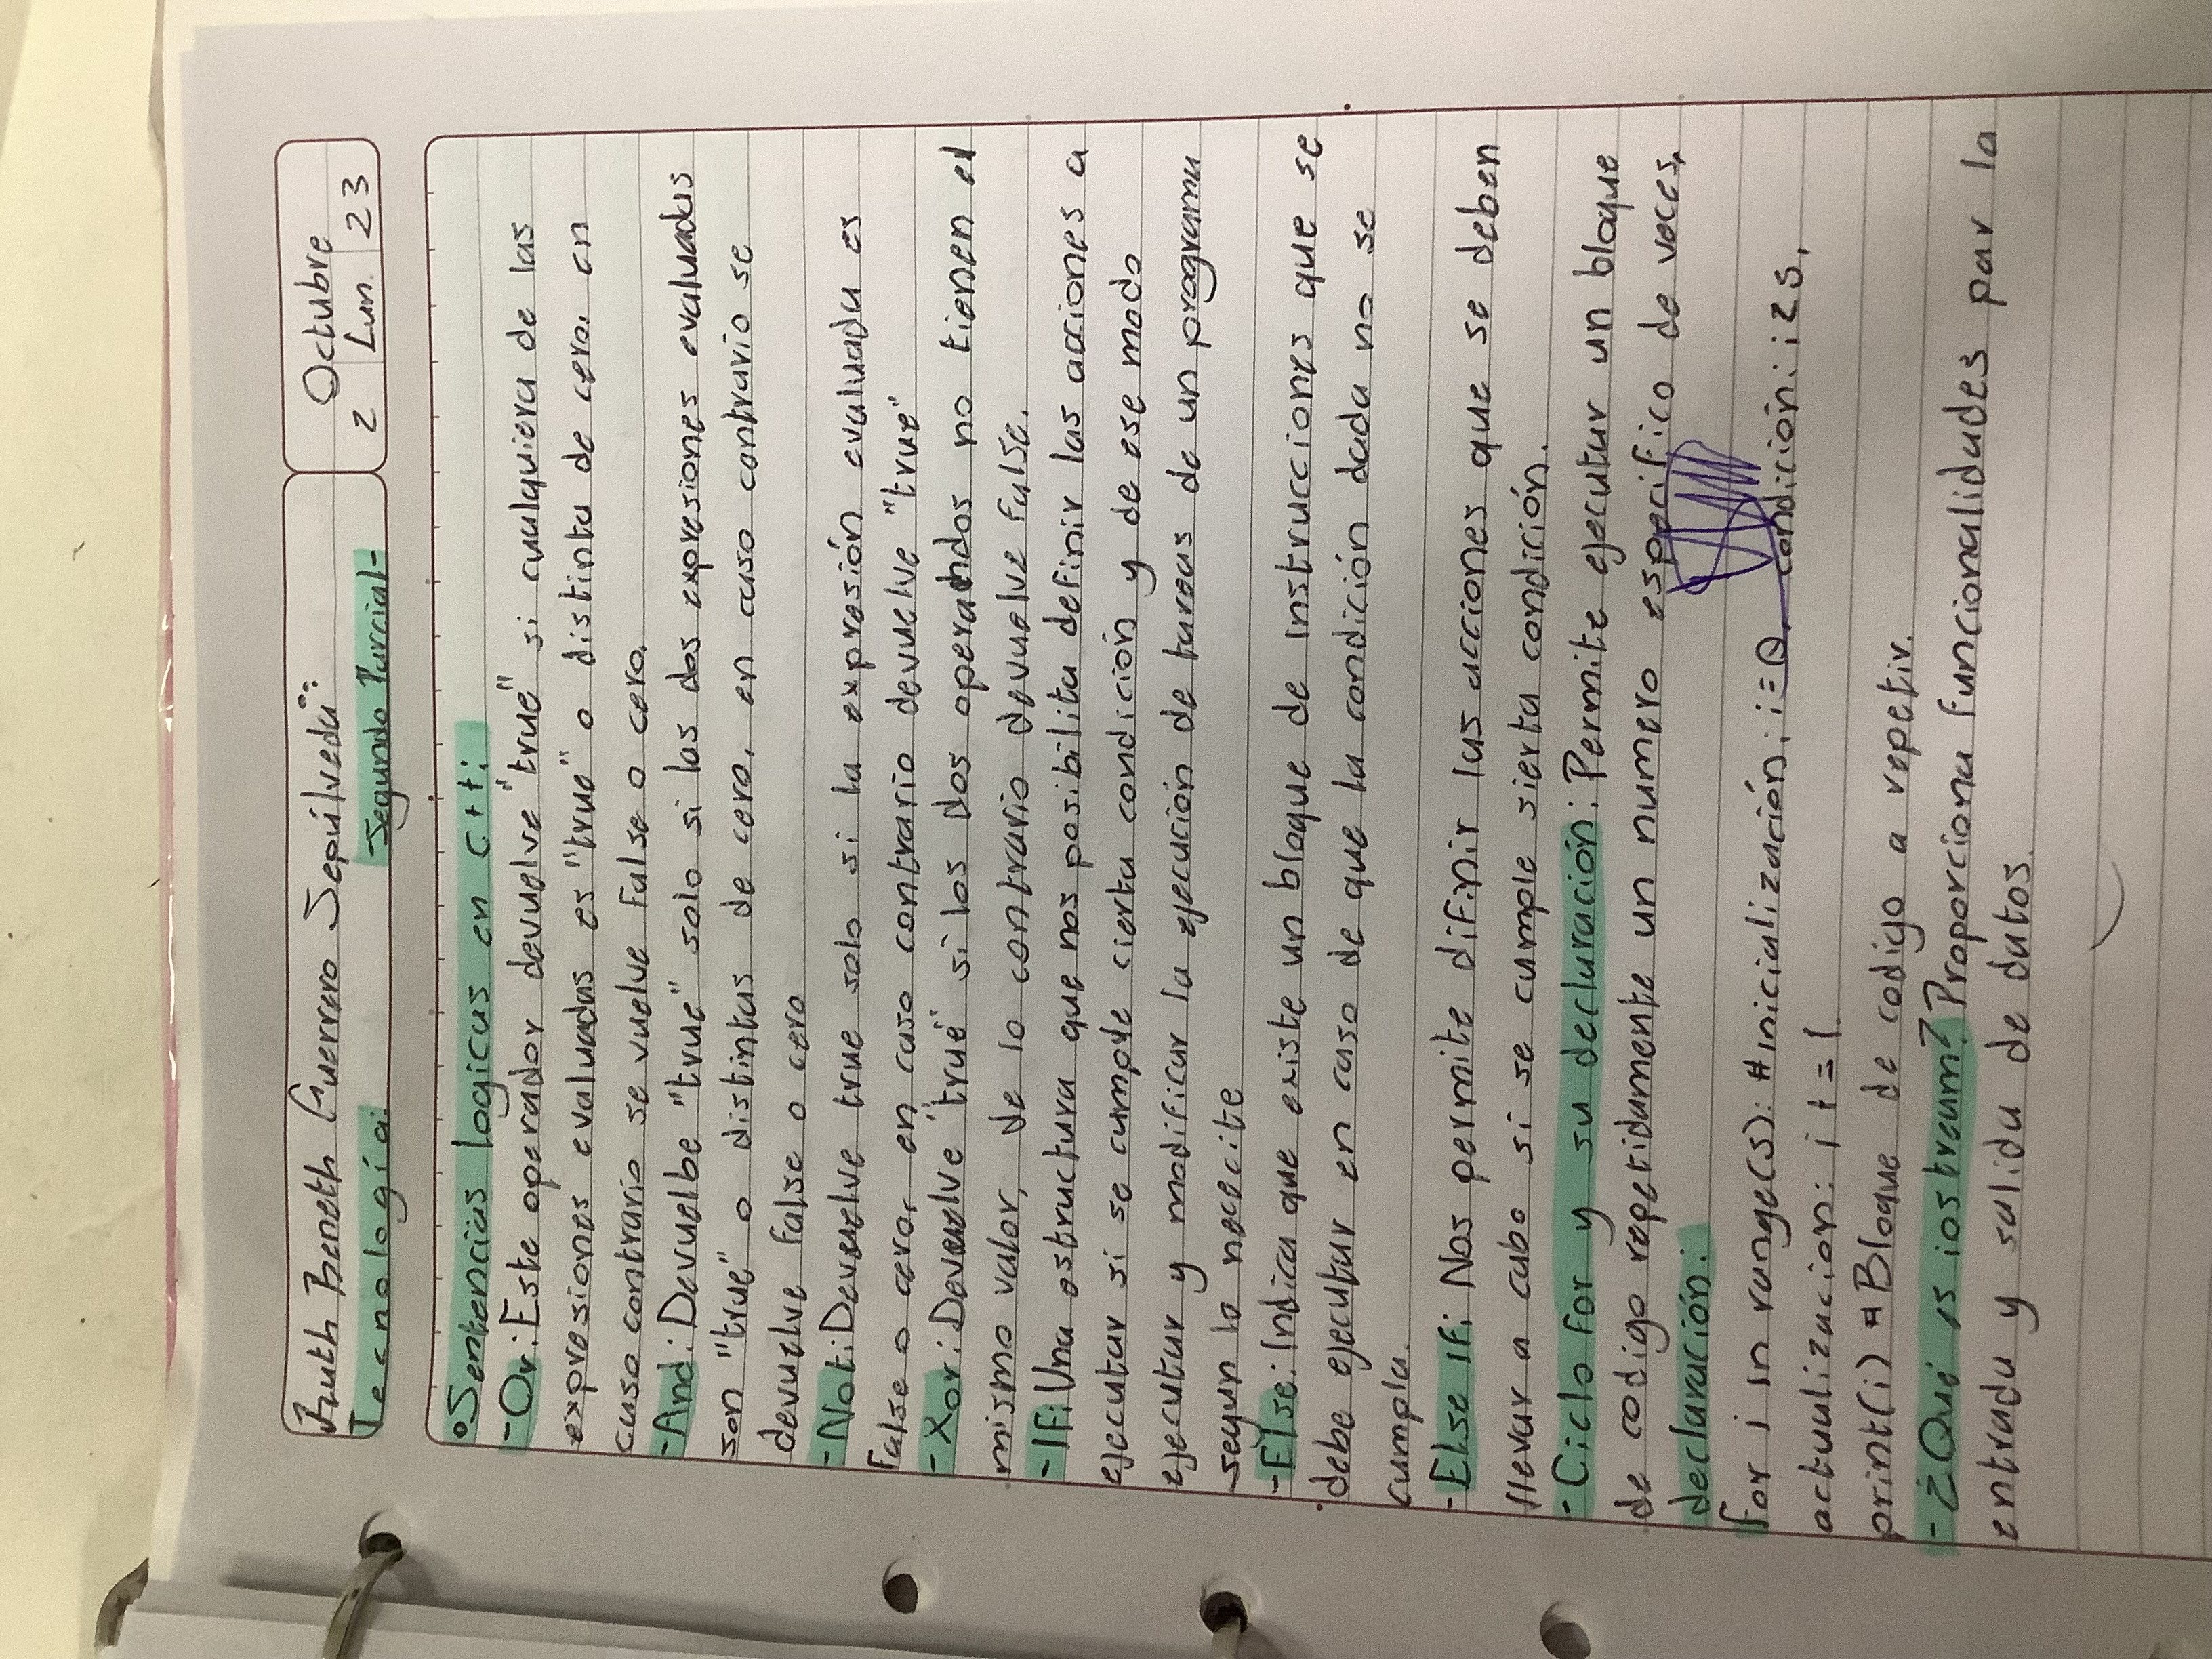 Ruth Beneth Guerrero Sepúlveda:
Octubre
Tecnología.
-Segundo Parcial-
2 Lun. 23
°Sentencias logicas en C++:
-Or: Este operador devuelve "true" si cualquiera de las
expresiones evaluadas es "true" o distinta de cero. en
caso contrario se vuelve false o cero.
-And: Devuelbe "true" solo si las dos expresiones evaluadas
son "true" o distintas de cero, en caso contrario se
devuelve false o cero
-Not: Devuelve true solo si la expresión evaluada es
false o cero, en caso contrario devuelve "true"
-Xor: Devuelve "true" si los dos operandos no tienen el
mismo valor, de lo contrario devuelve false.
-If: Una estructura que nos posibilita definir las acciones a
ejecutar si se cumple cierta condición y de ese modo
ejecutar y modificar la ejecución de tareas de un programa
segun lo nececite
-Else: Indica que existe un bloque de instrucciones que se
debe ejecutar en caso de que la condición dada no se
cumpla.
-Else If: Nos permite difinir las acciones que se deben
llevar a cabo si se cumple sierta condición.
-Ciclo for y su declaración: Permite ejecutar un bloque
de codigo repetidamente un numero especifico de veces,
declaración:
for i in range(s): #inicialización: i=0, condición: i<5,
actualizacion: i+=1
print(i) # Bloque de codigo a repetir.
-¿Qué is iostream? Proporciona funcionalidades par la
entrada y salida de datos.